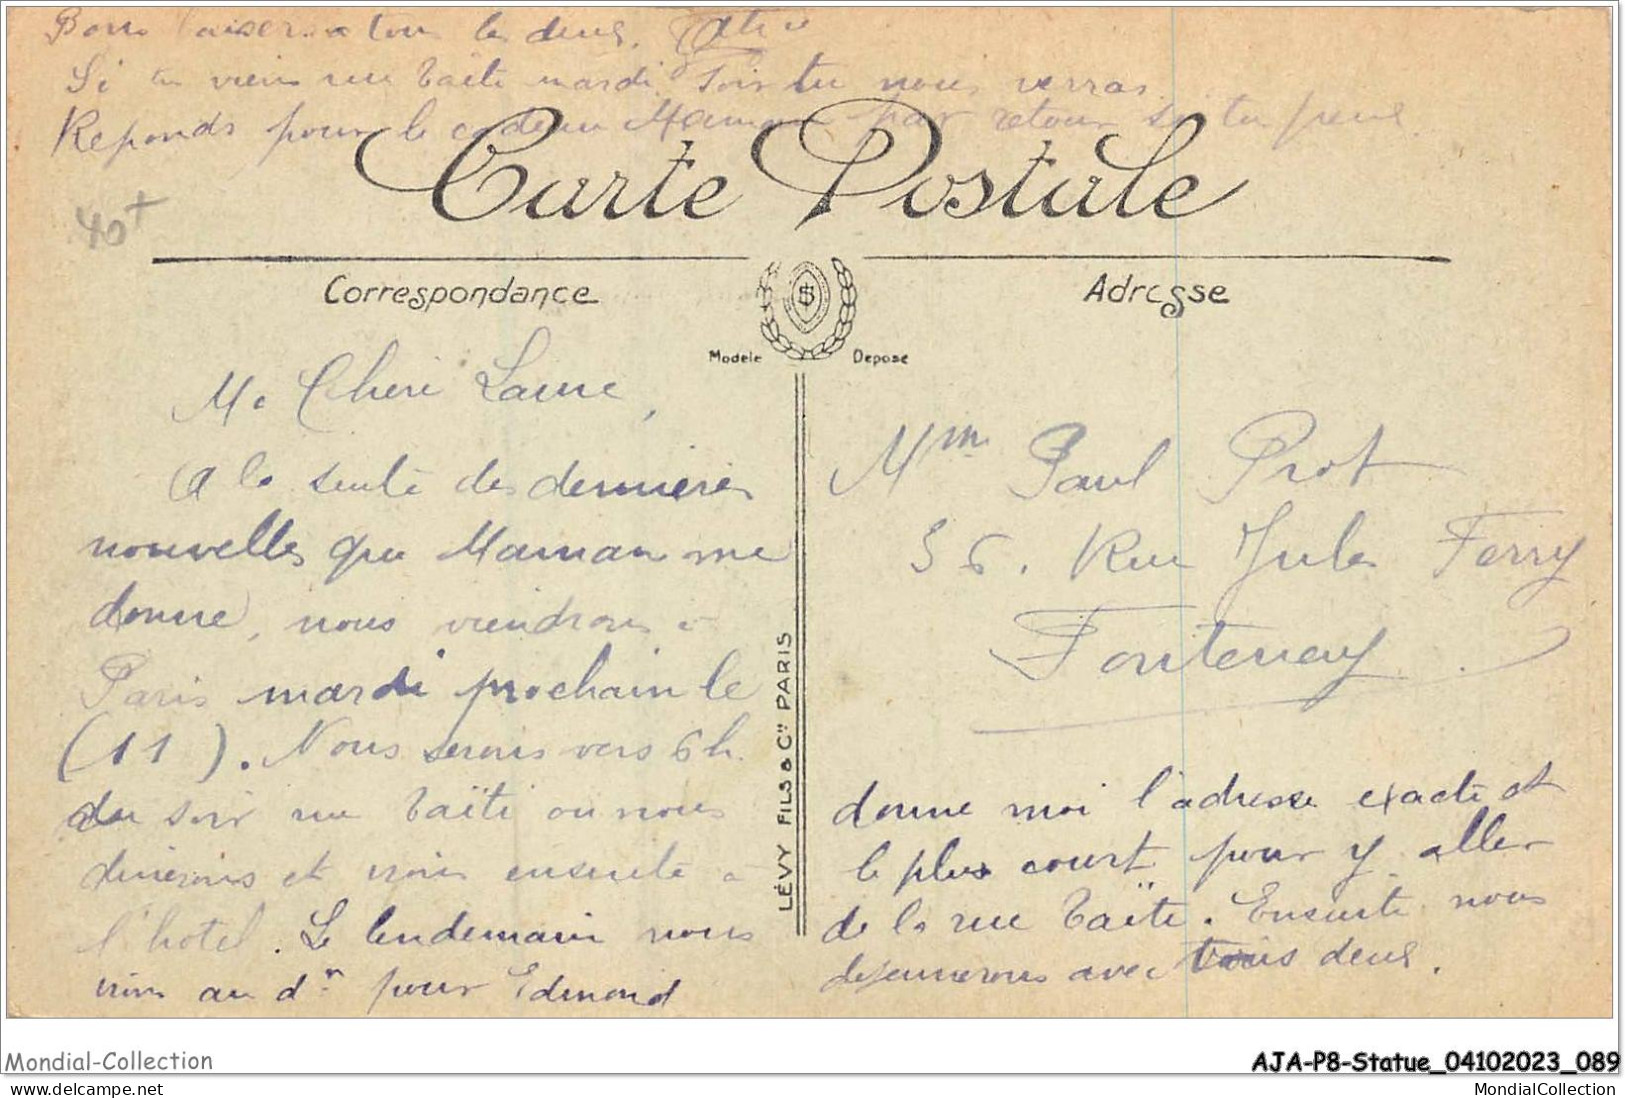 Bons baisers a tous les deux.
Si tu viens rue Taïti mardi soir tu nous verras
Reponds pour le cadeau Maman par retour si tu peux.
40+
Carte Postale
Correspondance
Adresse
Modèle Déposé
Ma Cheri
A la suite des dernieres
nouvelles que Maman me
donne, nous viendrons à
Paris mardi prochain le
(11). Nous serons vers 6h.
du soir rue Taïti ou nous
dinerons et irons ensuite à
l'hotel. Le lendemain nous
irons au dr pour Edmond
LÉVY FILS & Cie PARIS
Mm Paul Prot
56. Rue Jules Ferry
Fontenay
donne moi l'adresse exacte et
le plus court pour y aller
de la rue Taïti. Ensuite nous
dejeunerons avec vous deux.
Mondial-Collection
AJA-P8-Statue_04102023_089
www.delcampe.net
MondialCollection